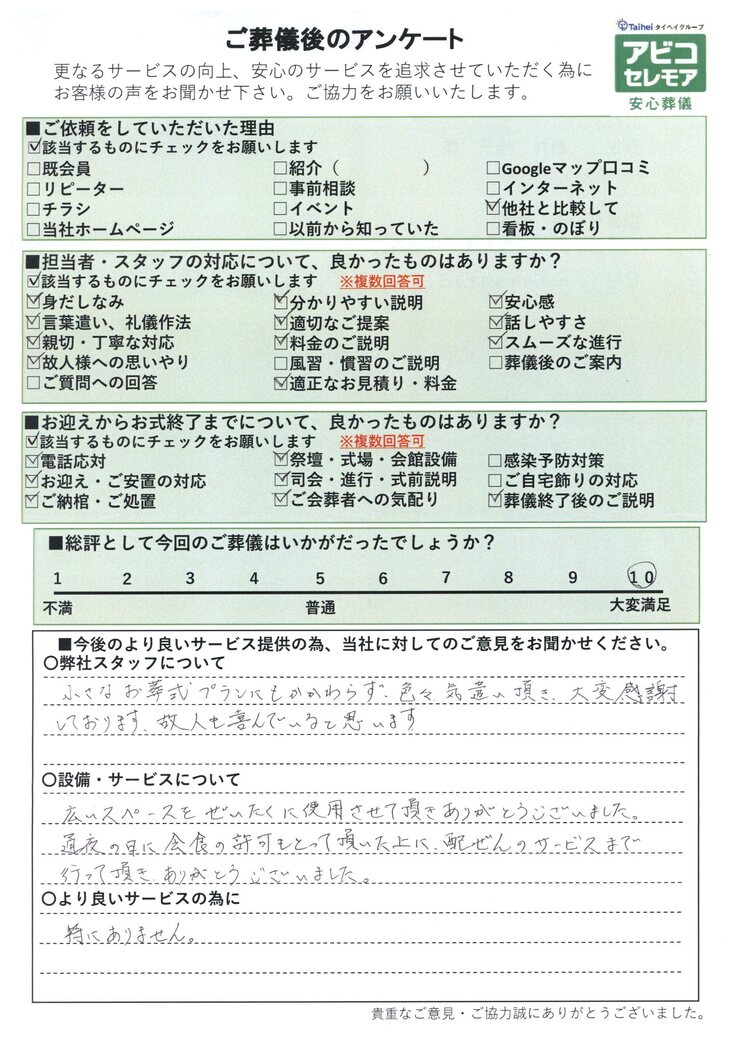 ご葬儀後のアンケート
Taihei タイヘイグループ
アビコ
セレモア
安心葬儀
更なるサービスの向上、安心のサービスを追求させていただく為に
お客様の声をお聞かせ下さい。ご協力をお願いいたします。
■ご依頼をしていただいた理由
☑該当するものにチェックをお願いします
□既会員 □紹介（　　　　　） □Googleマップ口コミ
□リピーター □事前相談 □インターネット
□チラシ □イベント ☑他社と比較して
□当社ホームページ □以前から知っていた □看板・のぼり
■担当者・スタッフの対応について、良かったものはありますか？
☑該当するものにチェックをお願いします ※複数回答可
☑身だしなみ ☑分かりやすい説明 ☑安心感
☑言葉遣い、礼儀作法 ☑適切なご提案 ☑話しやすさ
☑親切・丁寧な対応 ☑料金のご説明 ☑スムーズな進行
☑故人様への思いやり □風習・慣習のご説明 □葬儀後のご案内
□ご質問への回答 ☑適正なお見積り・料金
■お迎えからお式終了までについて、良かったものはありますか？
☑該当するものにチェックをお願いします ※複数回答可
☑電話応対 ☑祭壇・式場・会館設備 □感染予防対策
☑お迎え・ご安置の対応 ☑司会・進行・式前説明 □ご自宅飾りの対応
☑ご納棺・ご処置 ☑ご会葬者への気配り ☑葬儀終了後のご説明
■総評として今回のご葬儀はいかがだったでしょうか？
1 2 3 4 5 6 7 8 9 10
不満 普通 大変満足
■今後のより良いサービス提供の為、当社に対してのご意見をお聞かせください。
〇弊社スタッフについて
小さなお葬式プランにもかかわらず、色々気遣い頂き、大変感謝
しております。故人も喜んでいると思います
〇設備・サービスについて
広いスペースをぜいたくに使用させて頂きありがとうございました。
通夜の日に会食の許可もとって頂いた上に、配ぜんのサービスまで
行って頂き、ありがとうございました。
〇より良いサービスの為に
特にありません。
貴重なご意見・ご協力誠にありがとうございました。